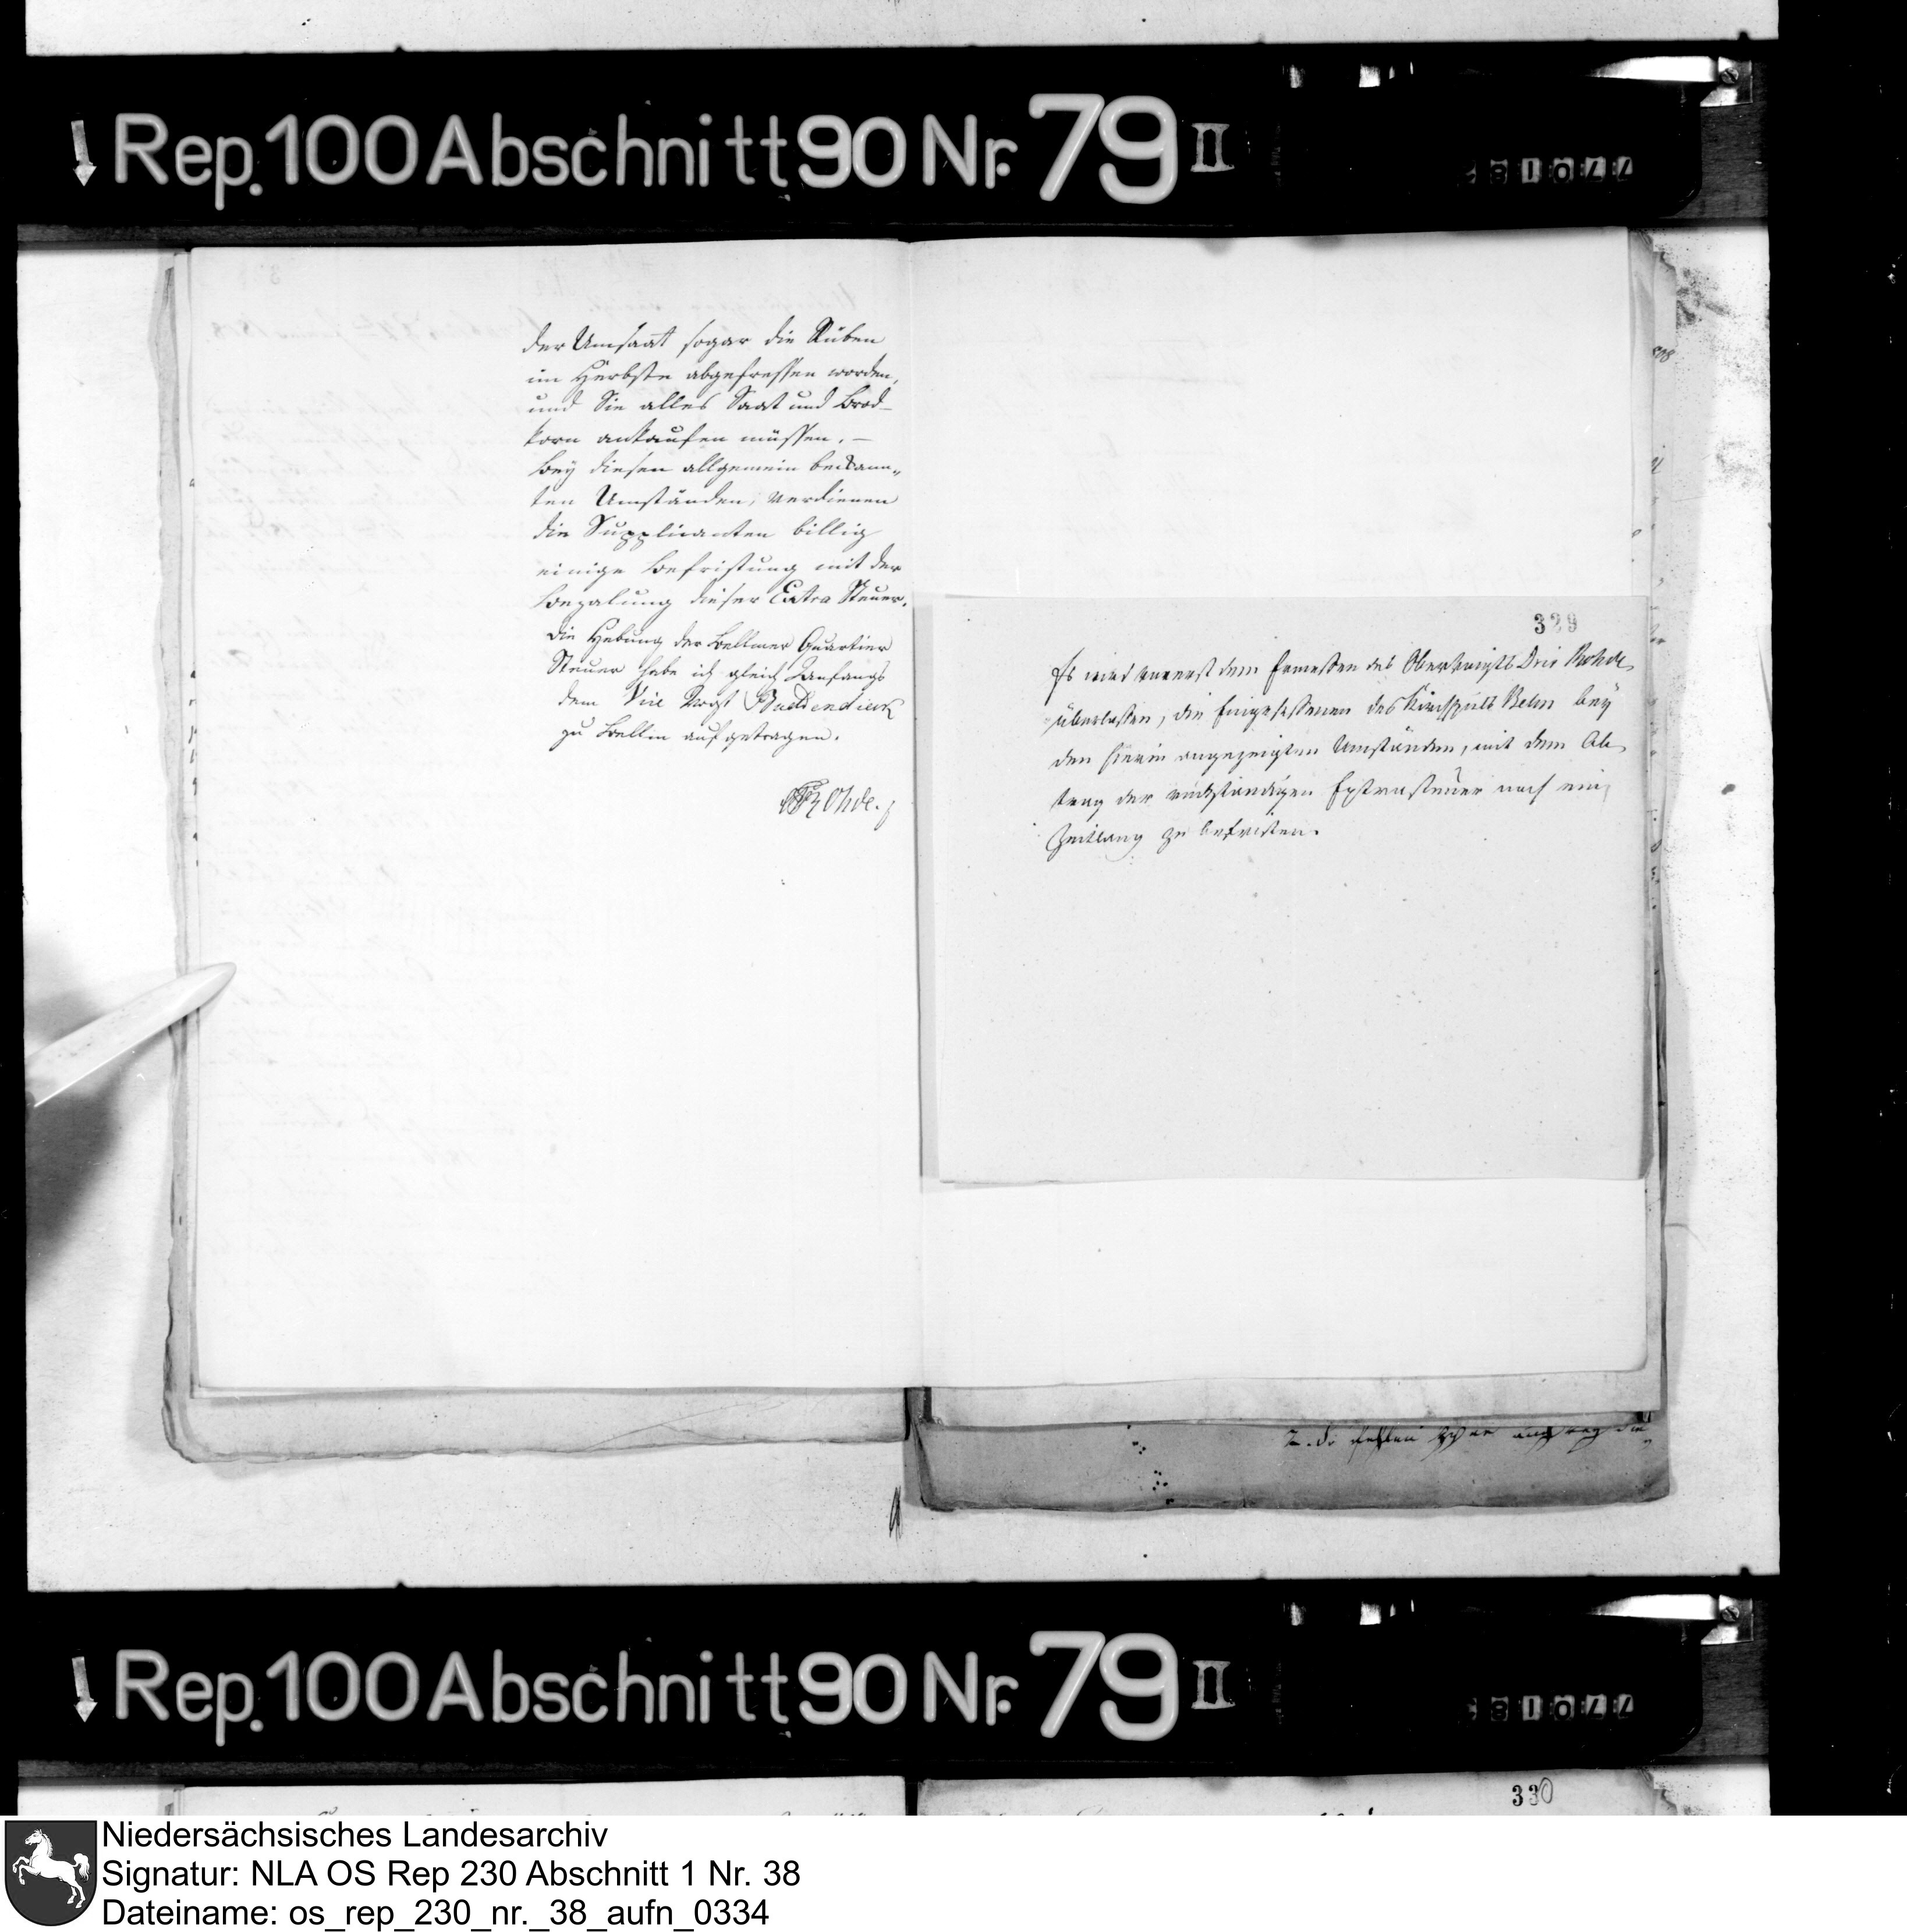 Rep. 100 Abschnitt 90 Nr. 79 II
der Umsaat sogar die Rüben
im Herbste abgefressen worden,
und Sie alles Saat und Brod-
korn ankaufen müssen. –
Bey diesen allgemein bekann„
ten Umständen, verdienen
die Supplicanten billig
einige Befristung mit der
Bezalung dieser Extra Steuer.
Die Hebung der Bellmer Quartier
Steuer habe ich gleich Anfangs
dem Vice Vogt Buddendieck
zu Bellm aufgetragen.
Rohde.
329
Es wird vorerst dem Ermeßen des Obervoigts Dris Rohde
überlaßen, die Eingeseßenen des Kirchspiels Belm bey
den hierin angezeigten Umständen, mit dem Ab
trag der rückständigen Extrasteuer noch eine
Zeitlang zu befristen.
Rep. 100 Abschnitt 90 Nr. 79 II
330
Niedersächsisches Landesarchiv
Signatur: NLA OS Rep 230 Abschnitt 1 Nr. 38
Dateiname: os_rep_230_nr._38_aufn_0334